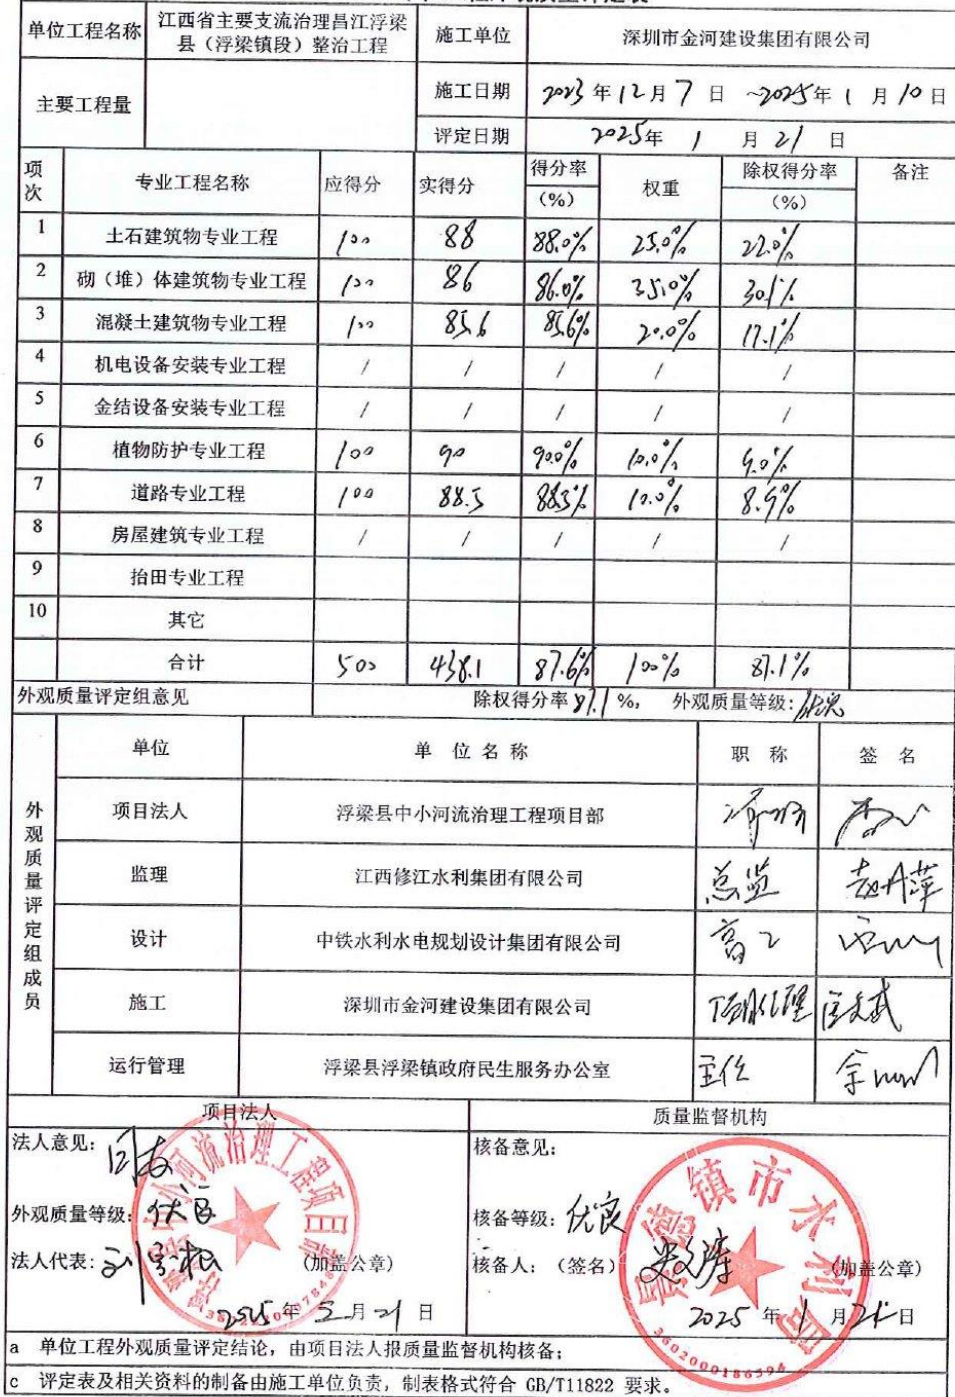 单位工程名称 江西省主要支流治理昌江浮梁县（浮梁镇段）整治工程 施工单位 深圳市金河建设集团有限公司
主要工程量 施工日期 2023年12月7日 ~2025年1月10日
评定日期 2025年1月21日
项次 专业工程名称 应得分 实得分 得分率(%) 权重 除权得分率(%) 备注
1 土石建筑物专业工程 100 88 88.0% 25.0% 22.0%
2 砌（堆）体建筑物专业工程 100 86 86.0% 35.0% 30.1%
3 混凝土建筑物专业工程 100 85.6 85.6% 20.0% 17.1%
4 机电设备安装专业工程 / / / / /
5 金结设备安装专业工程 / / / / /
6 植物防护专业工程 100 90 90.0% 10.0% 9.0%
7 道路专业工程 100 88.5 88.5% 10.0% 8.9%
8 房屋建筑专业工程 / / / / /
9 抬田专业工程
10 其它
合计 500 438.1 87.6% 100% 87.1%
外观质量评定组意见 除权得分率87.1%， 外观质量等级：优良
外观质量评定组成员
单位 单位名称 职称 签名
项目法人 浮梁县中小河流治理工程项目部
监理 江西修江水利集团有限公司 总监
设计 中铁水利水电规划设计集团有限公司 高工
施工 深圳市金河建设集团有限公司 项目经理
运行管理 浮梁县浮梁镇政府民生服务办公室 主任
项目法人 质量监督机构
法人意见：同意 核备意见：
外观质量等级：优良 核备等级：优良
法人代表： （加盖公章） 核备人：（签名） （加盖公章）
2025年 月21日 2025年1月21日
浮梁县中小河流治理工程项目部
景德镇市水利局
3602000186594
a 单位工程外观质量评定结论，由项目法人报质量监督机构核备；
c 评定表及相关资料的制备由施工单位负责，制表格式符合 GB/T11822 要求。